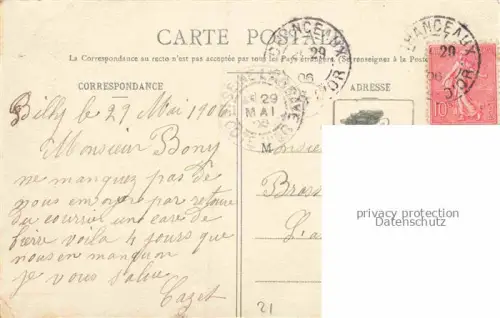 CARTE POSTALE
La Correspondance au recto n'est pas acceptée par tous les Pays étrangers. (Se renseignez à la Poste
CORRESPONDANCE
ADRESSE
CHANCEAUX
29
06
D'OR
CHANCEAUX
29
06
D'OR
29
MAI
06
10
Billy le 29 Mai 1906
Monsieur Bony
ne manquez pas de
nous envoyer par retour
du courrier une cave de
bière voila 4 jours que
nous en manquon
je vous salue
Cazet
M
onsie
Brass
L'a
privacy protection
Datenschutz
21